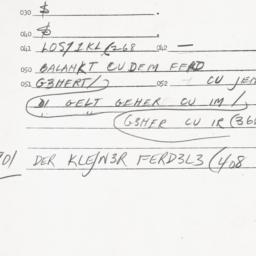 030 $
040 $
041 LOS/IKL/(268 042 —
050 BALANKT CU DEM FERD
051 G3HERT/) 052 — CU JEM
DI GELT GEHER CU IM/
" " G3HER CU IR (366
DER KLE/N3R FERD3L3 (408